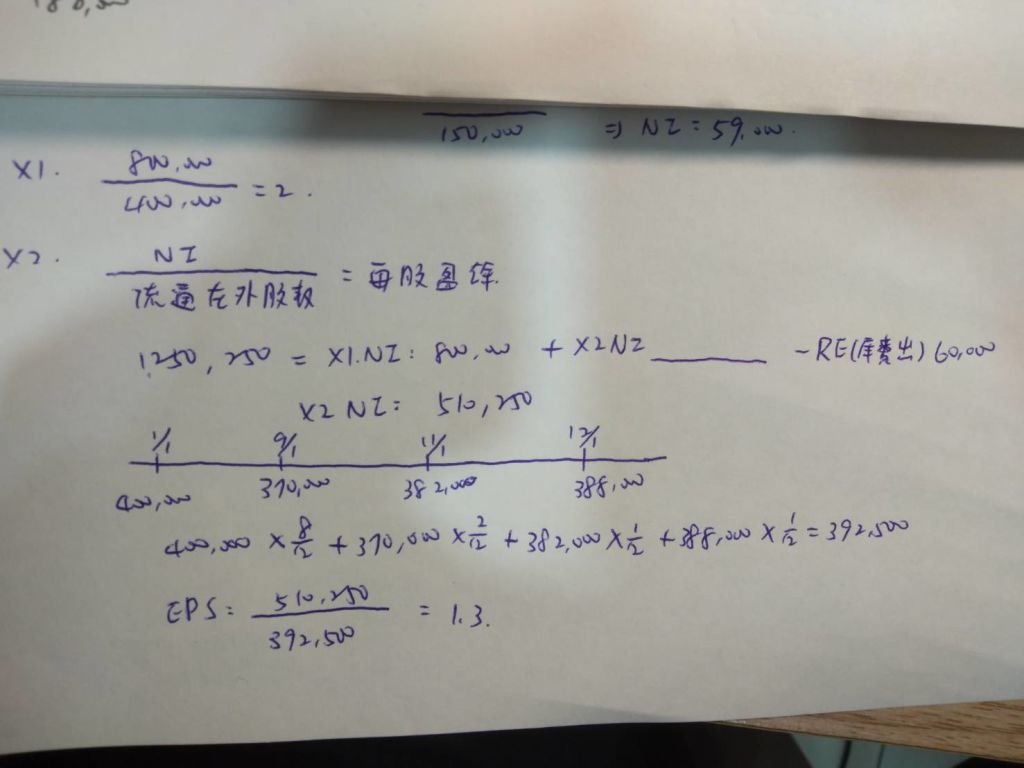 180,000
150,000 ⇒ NI = 59,000.
X1. 800,000 / 400,000 = 2.
X2. NI / 流通在外股數 = 每股盈餘.
1250,250 = X1.NI: 800,000 + X2NI ______ - RE(庫賣出) 60,000
X2 NI: 510,250
1/1 9/1 11/1 12/1
400,000 370,000 382,000 388,000
400,000 × 8/12 + 370,000 × 2/12 + 382,000 × 1/12 + 388,000 × 1/12 = 392,500
EPS: 510,250 / 392,500 = 1.3.